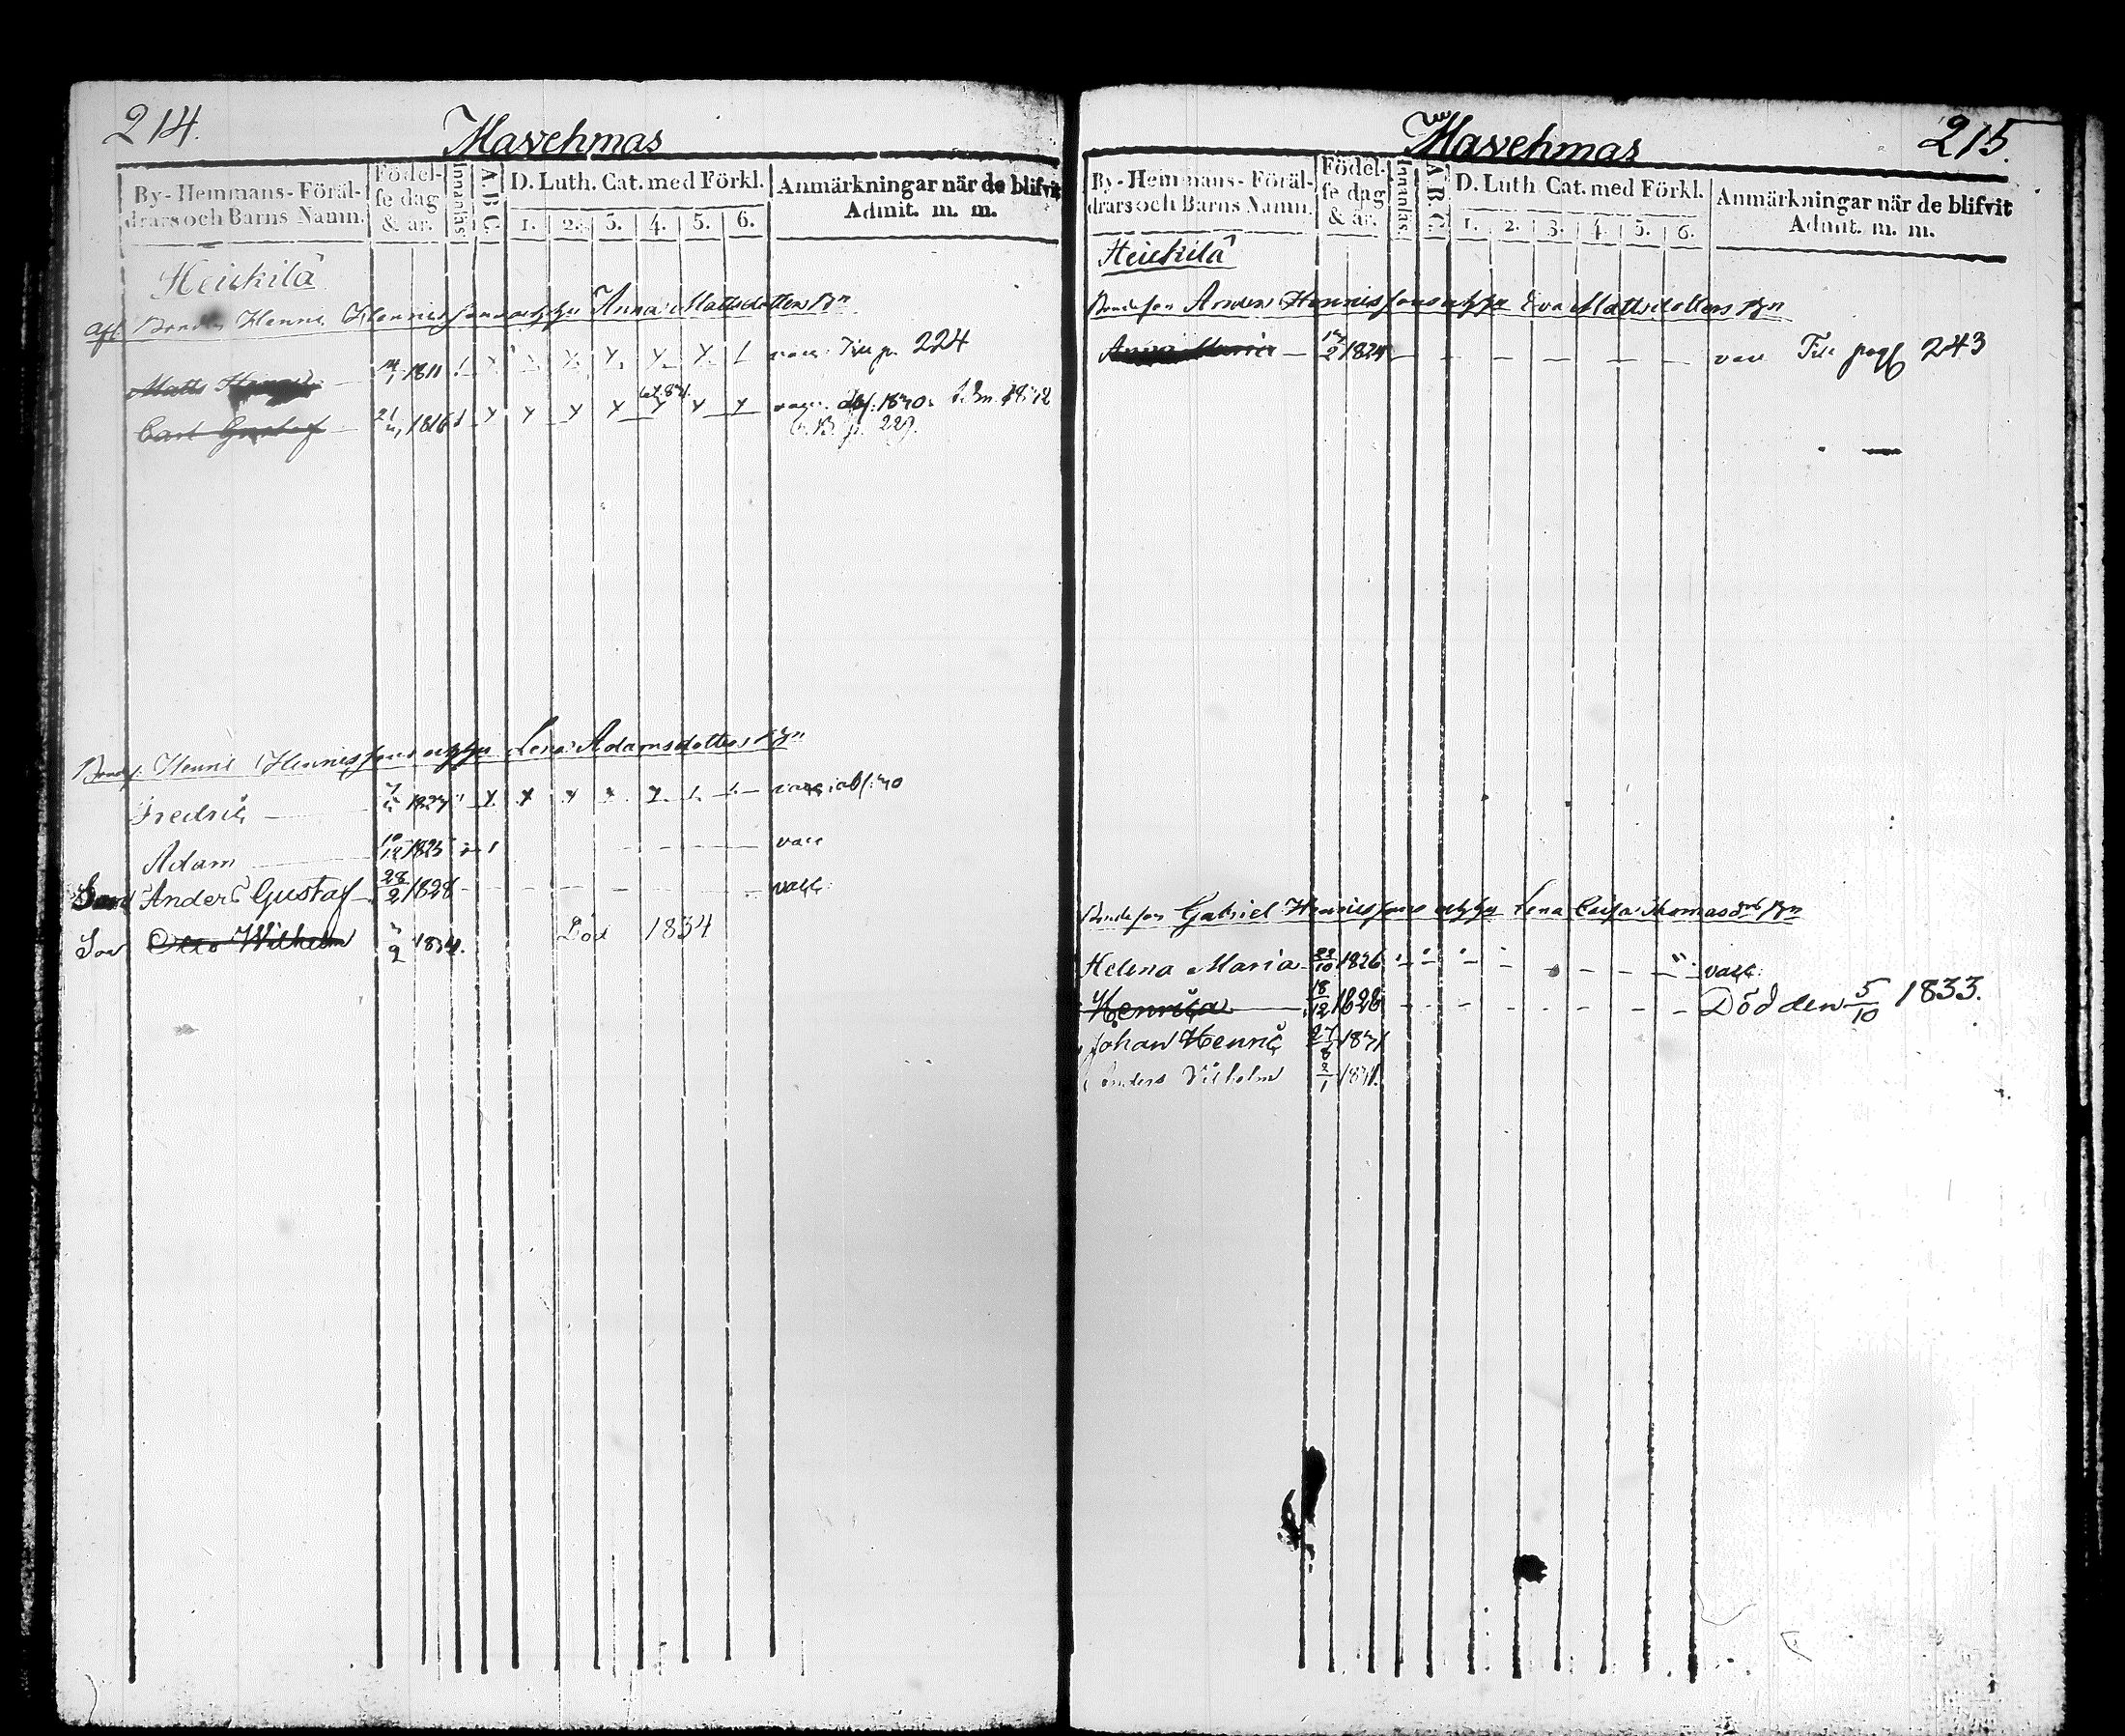 214.
Mavehmas
By-Hemmans-Föräl-
drars och Barns Namn.
Födel-
se dag
& år.
Innanläs
A.B.C.
D. Luth. Cat. med Förkl.
1. 2. 3. 4. 5. 6.
Anmärkningar när de blifvit
Admit. m. m.
Heickilä
Afl. Bonden Henric Henricsons och h:u Anna Mattsdotters B:n
Matts 1811 vacc. Till p. 224
Carl Gustaf 1816 vacc.
C.B. p. 229.
Bondes. Henric Henricssons och h:u Lena Adamsdotters B:n
Fredric vacc.
Adam 10/12 1825 vacc
Son Anders Gustaf 28/2 1828 vacc:
Son Otto Wilhelm Död 1834
215.
Mavehmas
By-Hemmans-Föräl-
drars och Barns Namn.
Födel-
se dag
& år.
Innanläs
A.B.C.
D. Luth. Cat. med Förkl.
1. 2. 3. 4. 5. 6.
Anmärkningar när de blifvit
Admit. m. m.
Heickilä
Bondeson Anders Henricssons och h:u Eva Mattsdotters B:n
Anna Maria 1824 vacc Till pag 243
Bondeson Gabriel Henricssons och h:u Lena Caisa Thomasd:rs B:n
Helena Maria 1826 vacc:
Henrica 18/12 1828 Död den 5/10 1833.
Johan Henric 27/8
Anders Vilhelm 2/1